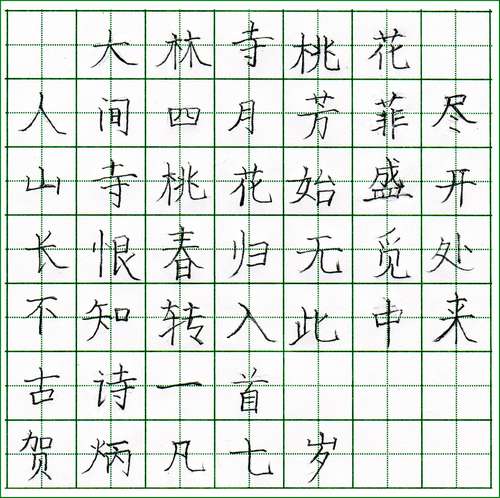 大林寺桃花
人间四月芳菲尽
山寺桃花始盛开
长恨春归无觅处
不知转入此中来
古诗一首
贺炳凡七岁